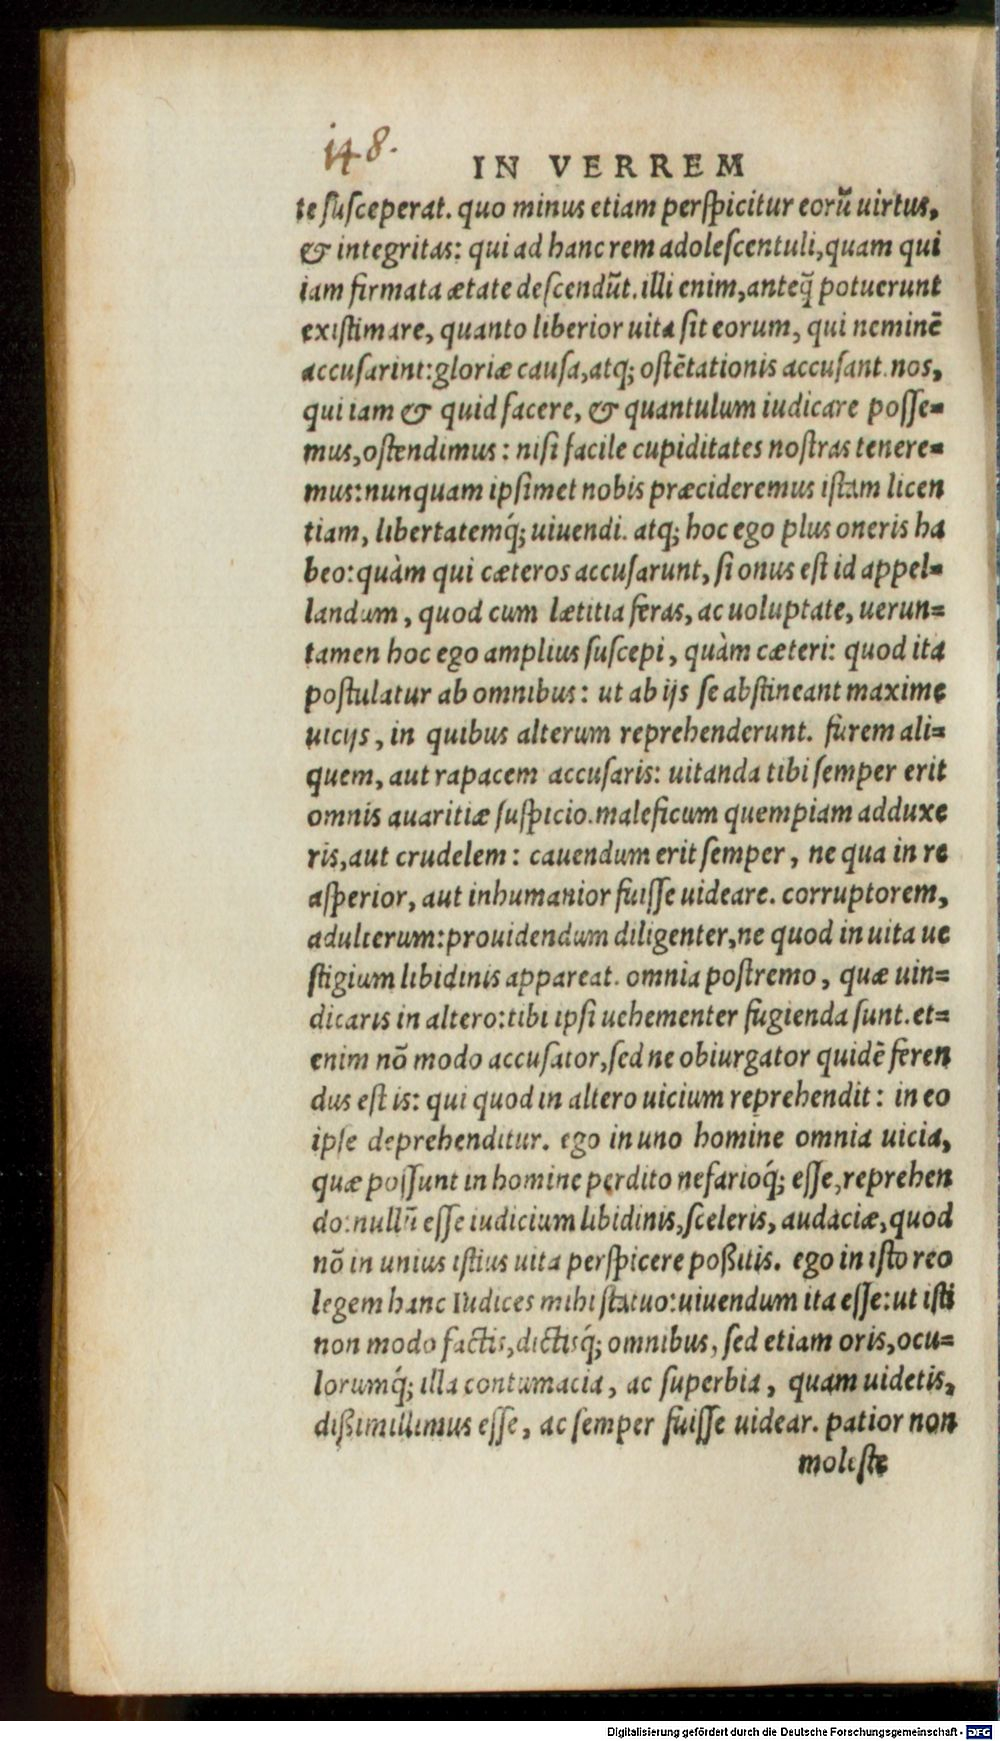 148.
IN VERREM
te ſuſceperat. quo minus etiam perſpicitur eorũ uirtus,
& integritas: qui ad hanc rem adoleſcentuli, quam qui
iam firmata ætate deſcendũt. illi enim, anteq̃ potuerunt
exiſtimare, quanto liberior uita ſit eorum, qui neminẽ
accuſarint: gloriæ cauſa, atq; oſtẽtationis accuſant. nos,
qui iam & quid facere, & quantulum iudicare poſſe=
mus, oſtendimus: niſi facile cupiditates noſtras tenere=
mus: nunquam ipſimet nobis præcideremus iſtam licen
tiam, libertatemq́; uiuendi. atq; hoc ego plus oneris ha
beo: quàm qui cæteros accuſarunt, ſi onus eſt id appel=
landum, quod cum lætitia feras, ac uoluptate, uerun=
tamen hoc ego amplius ſuſcepi, quàm cæteri: quod ita
poſtulatur ab omnibus: ut ab ijs ſe abſtineant maxime
uicijs, in quibus alterum reprehenderunt. furem ali=
quem, aut rapacem accuſaris: uitanda tibi ſemper erit
omnis auaritiæ ſuſpicio. maleficum quempiam adduxe
ris, aut crudelem: cauendum erit ſemper, ne qua in re
aſperior, aut inhumanior fuiſſe uideare. corruptorem,
adulterum: prouidendum diligenter, ne quod in uita ue
ſtigium libidinis appareat. omnia poſtremo, quæ uin=
dicaris in altero: tibi ipſi uehementer fugienda ſunt. et=
enim nõ modo accuſator, ſed ne obiurgator quidẽ feren
dus eſt is: qui quod in altero uicium reprehendit: in eo
ipſe deprehenditur. ego in uno homine omnia uicia,
quæ poſſunt in homine perdito nefarioq́; eſſe, reprehen
do: nullũ eſſe iudicium libidinis, ſceleris, audaciæ, quod
nõ in unius iſtius uita perſpicere poßitis. ego in iſto reo
legem hanc Iudices mihi ſtatuo: uiuendum ita eſſe: ut iſti
non modo factis, dictisq́; omnibus, ſed etiam oris, ocu=
lorumq́; illa contumacia, ac ſuperbia, quam uidetis,
dißimillimus eſſe, ac ſemper fuiſſe uidear. patior non
moleſte
Digitalisierung gefördert durch die Deutsche Forschungsgemeinschaft - DFG